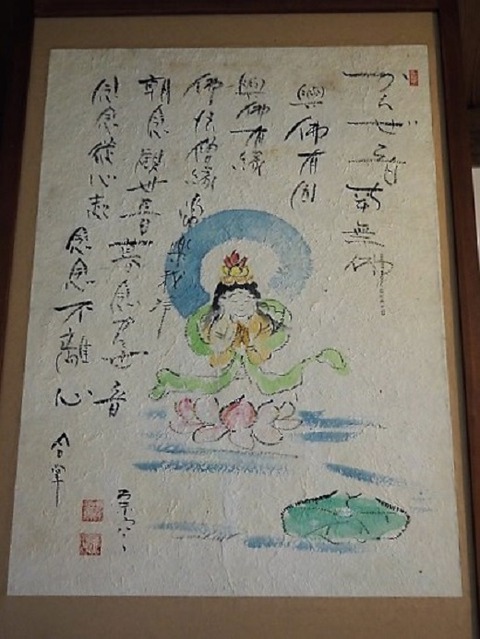 かんぜ音南無佛
與佛有因
與佛有縁
佛法僧縁常樂我浄
朝念觀世音暮念かん世音
念念從心起
念念不離心
合掌